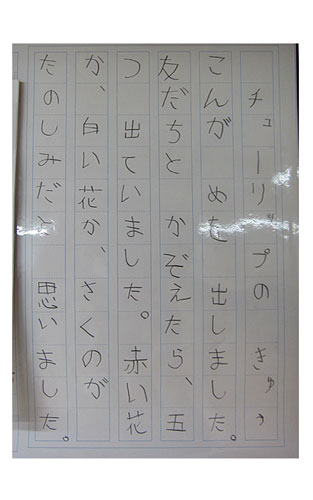 チューリップの　きゅう
こんが　めを　出しました。
友だちと　かぞえたら、五
つ　出ていました。赤い花
か、白い花か、さくのが
たのしみだと　思いました。